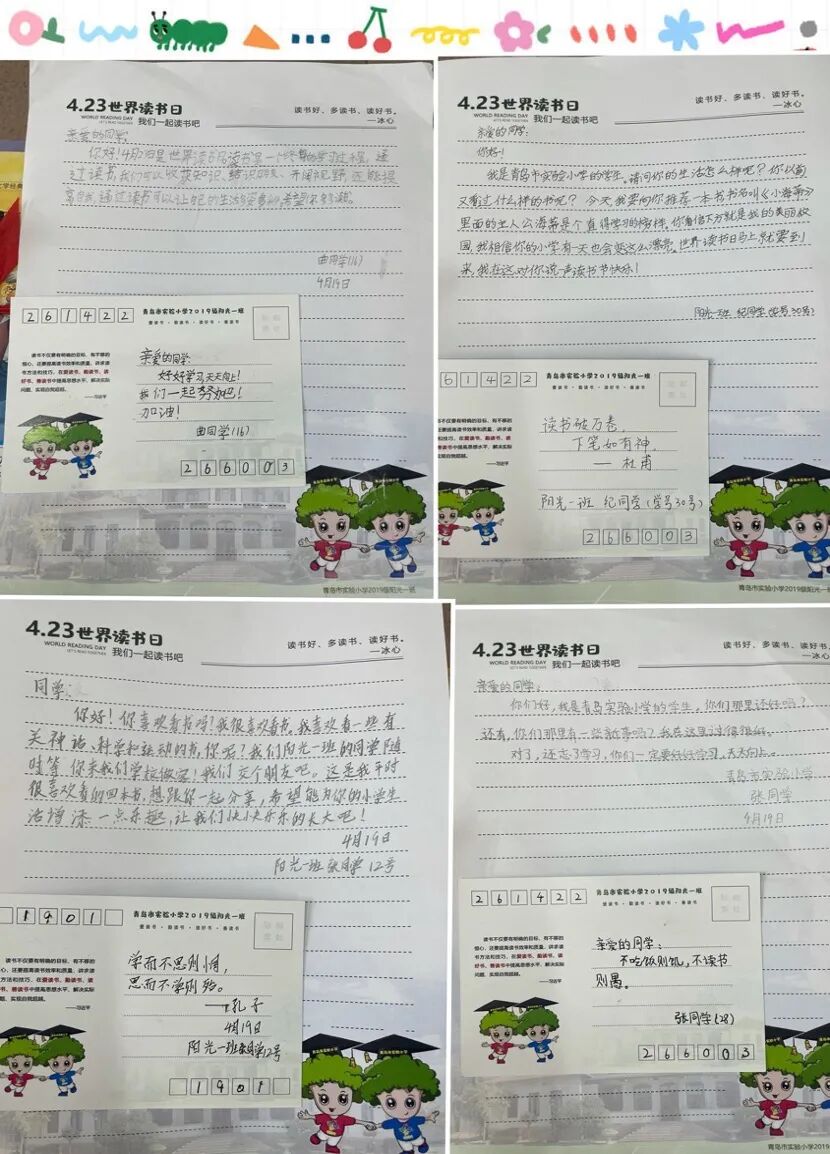 4.23世界读书日
WORLD READING DAY
LET'S READ TOGETHER
我们一起读书吧
读书好、多读书、读好书。
—冰心
亲爱的同学:
你好!4月23日是世界读书日,读书是一个终身的学习过程,通
过读书,我们可以收获知识、结识朋友、开阔视野,还能提
高自我,通过读书可以让自己的生活
曲同学(16)
4月19日
261422
青岛市实验小学2019级阳光一班
爱读书·勤读书·读好书·善读书
读书不仅要有明确的目标、有不移的
恒心,还要提高读书效率和质量,讲求读
书方法和技巧,在爱读书、勤读书、读
好书、善读书中提高思想水平、解决实际
问题、实现自我超越。
——习近平
亲爱的同学:
好好学习,天天向上!
我们一起努力吧!
加油!
曲同学(16)
266003
青岛市实验小学2019级阳光一班
4.23世界读书日
WORLD READING DAY
LET'S READ TOGETHER
我们一起读书吧
读书好、多读书、读好书。
—冰心
亲爱的同学:
你好!
我是青岛市实验小学的学生。请问你的生活怎么样呢?你以前
又看过什么样的书呢?今天我要向你推荐一本书书名叫《小海蒂》
里面的主人公海蒂是个值得学习的榜样。你看信下方就是我的美丽校
园,我相信你的小学有一天也会变这么漂亮。世界读书日马上就要到
来,我在这对你说一声读书节快乐!
阳光一班 纪同学(学号30号)
61422
青岛市实验小学2019级阳光一班
爱读书·勤读书·读好书·善读书
读书破万卷,
下笔如有神。
— 杜甫
阳光一班 纪同学(学号30号)
266003
青岛市实验小学2019级阳光一班
4.23世界读书日
WORLD READING DAY
LET'S READ TOGETHER
我们一起读书吧
读书好、多读书、读好书。
—冰心
同学:
你好!你喜欢看书吗?我很喜欢看书,我喜欢看一些有
关神话、科学和运动的书,你呢?我们阳光一班的同学随
时等你来我们学校做客!我们交个朋友吧。这是我平时
很喜欢看的四本书,想跟你一起分享,希望能为你的小学生
活增添一点乐趣,让我们快快乐乐的长大吧!
4月19日
阳光一班 同学 12号
1901
青岛市实验小学2019级阳光一班
爱读书·勤读书·读好书·善读书
学而不思则惘,
思而不学则殆。
——孔子
4月19日
阳光一班 同学12号
1901
4.23世界读书日
WORLD READING DAY
LET'S READ TOGETHER
我们一起读书吧
读书好、多读书、读好书。
—冰心
亲爱的同学:
你们好,我是青岛实验小学的学生,你们那里还好吗?
还有,你们那里有一些新事吗?我在这里过得很好。
对了,还忘了学习,你们一定要好好学习,天天向上。
青岛市实验小学
张同学
4月19日
261422
青岛市实验小学2019级阳光一班
爱读书·勤读书·读好书·善读书
读书不仅要有明确的目标、有不移的
恒心,还要提高读书效率和质量,讲求读
书方法和技巧,在爱读书、勤读书、读
好书、善读书中提高思想水平、解决实际
问题、实现自我超越。
——习近平
亲爱的同学:
不吃饭则饥,不读书
则愚。
张同学(28)
266003
青岛市实验小学2019级阳光一班